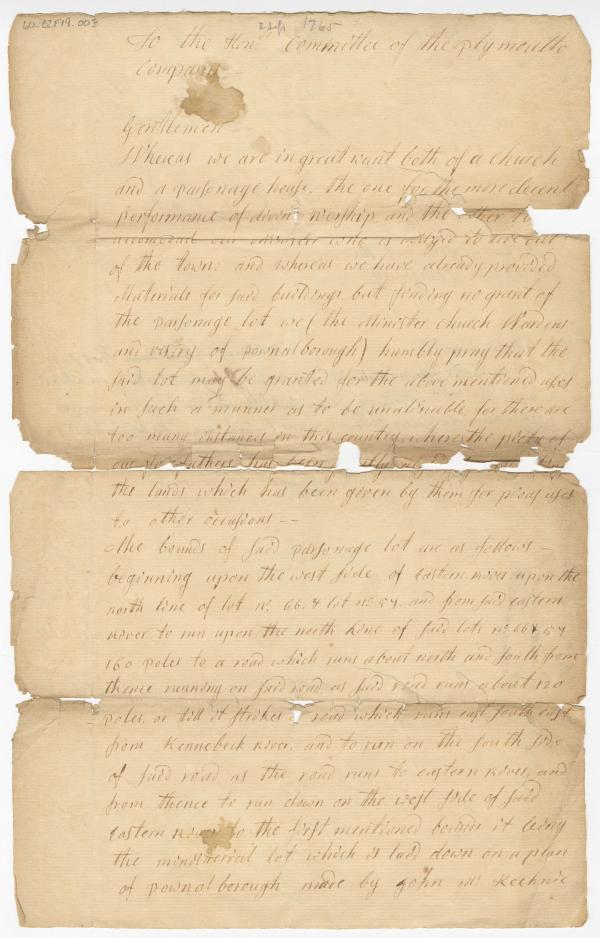 1765
To the Honble Committee of the Plymouth
Company
Gentlemen
Whereas we are in great want both of a church
and a parsonage house. the one for the more decent
performance of divine worship and the other to
accomodate our Minister who is obliged to live out
of the town: and whereas we have already provided
Materials for said buildings but finding no grant of
the parsonage lot we (the Minister Church Wardens
and vestry of pownalborough) humbly pray that the
said lot may be granted for the above mentioned uses
in such a manner as to be unalinable for there are
too many instances in this country where the piety of
our forefathers has been
the lands which has been given by them for pious uses
to other occasions --
The bounds of said parsonage lot are as follows -
beginning upon the west side of Eastern river upon the
north line of lot no. 66. & lot no. 57 and from said eastern
River to run upon the north line of said lots no. 66 & 57
160 poles to a road which runs about north and south from
thence running on said road as said road runs about 120
poles, or till it strikes a road which runs east south east
from Kennebeck river, and to run on the south side
of said road as the road runs to eastern river, and
from thence to run down on the west side of said
Eastern river to the first mentioned bounds it being
the ministerial lot which is laid down on a plan
of pownalborough made by John Mc Kechnie